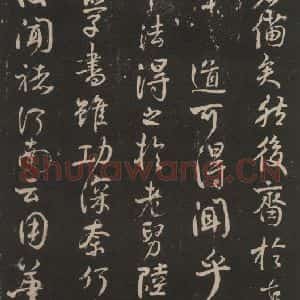 備矣然後齊於古
道可得聞乎
法得之於老舅陸
學書雖功深奈何
聞褚河南云用筆
Shufawang.CN